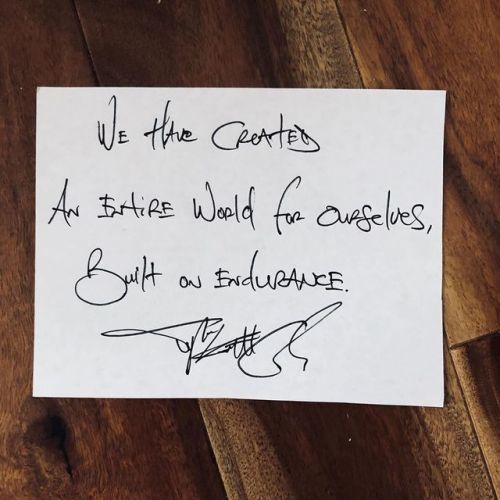 We Have Created
An Entire World for Ourselves,
Built on Endurance.